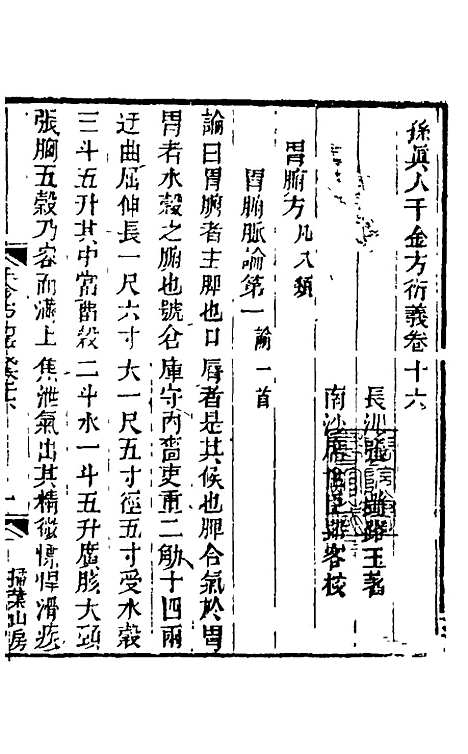 孫真人千金方衍義卷十六
長洲張璐路玉著
南沙席 客校
胃腑方凡八類
胃腑脈論第一 論一首
論曰胃腑者主脾也口脣者是其候也脾合氣於胃
胃者水穀之腑也號倉庫守內嗇吏重二觔十四兩
迂曲屈伸長一尺六寸大一尺五寸徑五寸受水穀
三斗五升其中當畱穀二斗水一斗五升廣胲大頸
張胸五穀乃容而滿上焦泄氣出其精微慓悍滑疾
掃葉山房